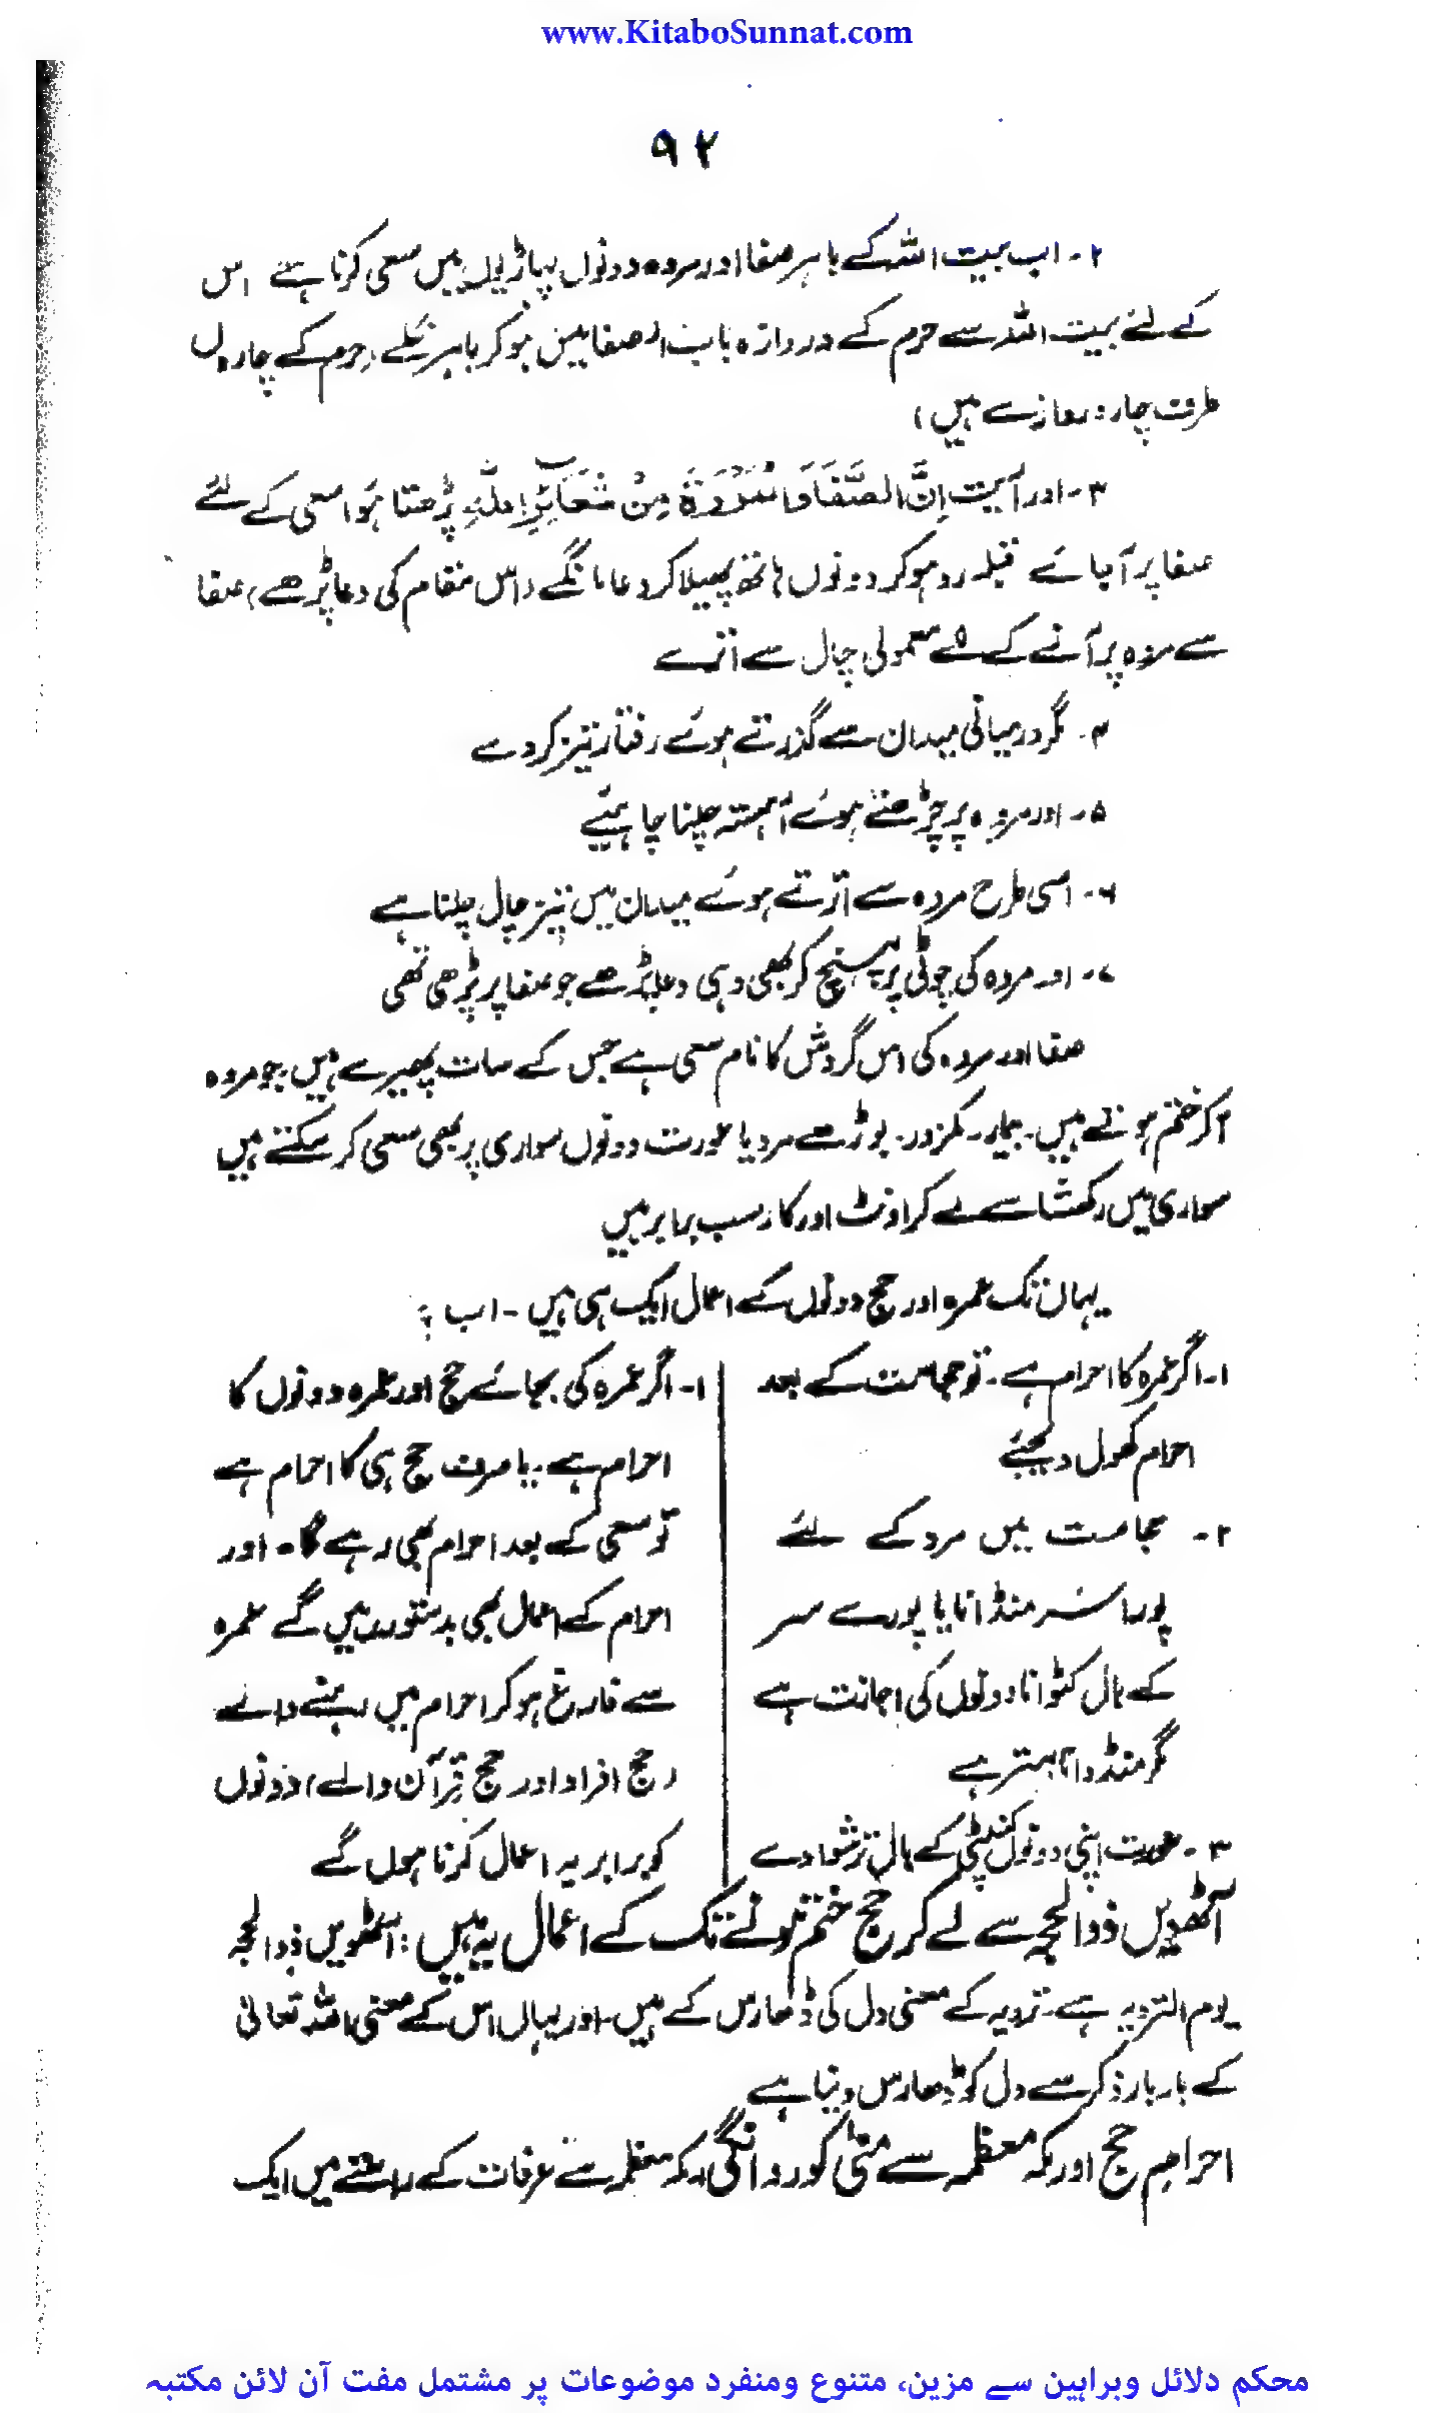 www.KitaboSunnat.com
۹۲
۲۔ اب بیت اللہ کے باہر صفا اور مروہ دونوں پہاڑیوں میں سعی کرنا ہے اس
کے لئے بیت اللہ سے حرم کے دروازہ باب الصفا میں ہو کر باہر نکلے (حرم کے چاروں
طرف چار دروازے ہیں)
۳۔ اور آیت اِنَّ الصَّفَا وَالْمَرْوَةَ مِنْ شَعَائِرِ اللّٰهِ پڑھتا ہوا سعی کے لئے
صفا پر آ جائے قبلہ رو ہو کر دونوں ہاتھ پھیلا کر دعا مانگے (اس مقام کی دعا پڑھے) صفا
سے مروہ پر آنے کے لئے معمولی چال سے اترے
۴۔ مگر درمیانی میدان سے گذرتے ہوئے رفتار تیز کر دے
۵۔ اور مروہ پر چڑھتے ہوئے آہستہ چلنا چاہیئے
۶۔ اسی طرح مروہ سے اترتے ہوئے میدان میں تیز چال چلنا ہے
۷۔ اور مروہ کی چوٹی پر پہنچ کر بھی وہی دعا پڑھے جو صفا پر پڑھی تھی
صفا اور مروہ کی اس گردش کا نام سعی ہے جس کے سات پھیرے ہیں جو مروہ
آکر ختم ہوتے ہیں۔ بیمار۔ کمزور۔ بوڑھے مرد یا عورت دونوں سواری پر بھی سعی کر سکتے ہیں
سواری میں رکھشا سے لے کر اونٹ اور کار سب برابر ہیں
یہاں تک عمرہ اور حج دونوں کے اعمال ایک ہی ہیں ۔ اب :
۱۔ اگر عمرہ کا احرام ہے۔ تو حجامت کے بعد
احرام کھول دیجیئے
۲۔ حجامت میں مرد کے لئے
پورا سر منڈانا یا پورے سر
کے بال کٹوانا دونوں کی اجازت ہے
مگر منڈوانا بہتر ہے
۳۔ عورت اپنی دونوں کنپٹی کے بال ترشوا دے
۱۔ اگر عمرہ کی بجائے حج اور عمرہ دونوں کا
احرام ہے۔ یا صرف حج ہی کا احرام ہے
تو سعی کے بعد احرام بھی رہے گا۔ اور
احرام کے اعمال بھی بدستور رہیں گے عمرہ
سے فارغ ہو کر احرام میں رہنے والے
(حج افراد اور حج قرآن والے) دونوں
کو برابر یہ اعمال کرنا ہوں گے
آٹھویں ذوالحجہ سے لے کر حج ختم ہونے تک کے اعمال یہ ہیں : آٹھویں ذوالحجہ
یوم الترویہ ہے۔ ترویہ کے معنی دل کی ڈھارس کے ہیں۔ اور یہاں اس کے معنی اللہ تعالیٰ
کے بار بار ذکر سے دل کو ڈھارس دینا ہے
احرامِ حج اور مکہ معظمہ سے منیٰ کو روانگی مکہ معظمہ سے عرفات کے راستے میں ایک
محکم دلائل وبراہین سے مزین، متنوع ومنفرد موضوعات پر مشتمل مفت آن لائن مکتبہ